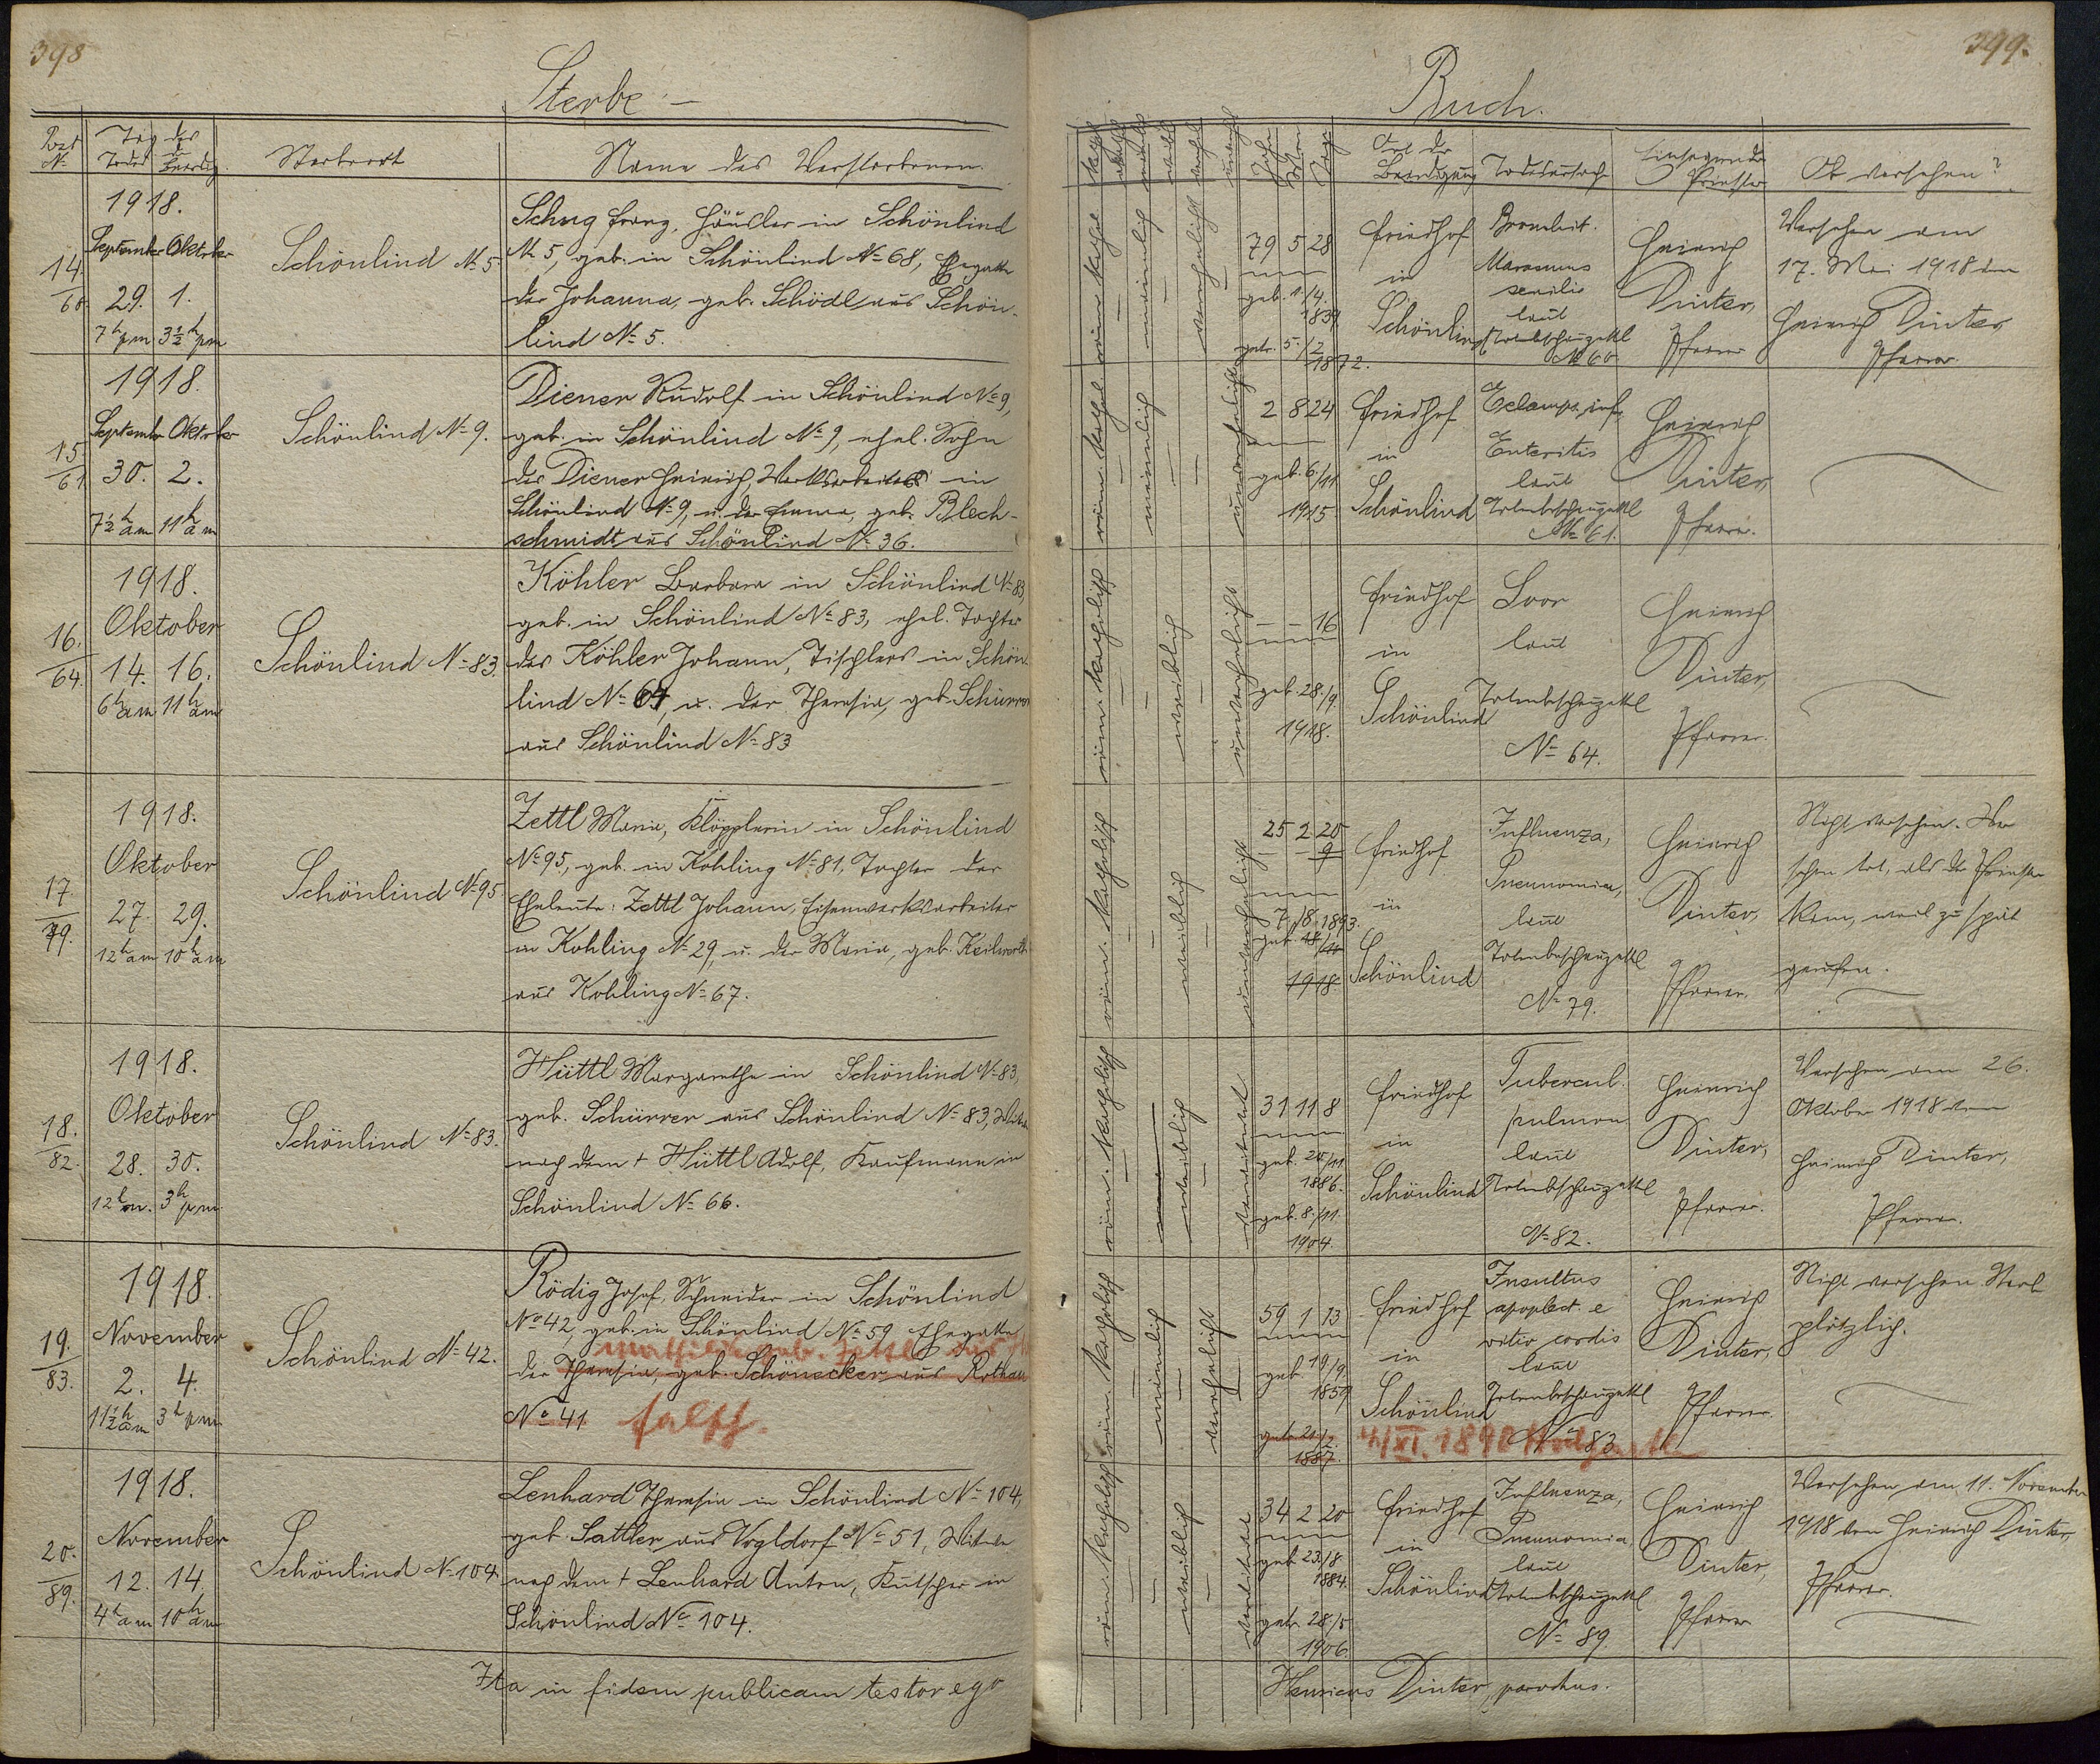 398
Sterbe-
Post
No
Tag des
Todes
Beerdig.
Sterbeort
Name des Verstorbenen.
1918.
September Oktober
14.
60.
29. 1.
7h pm 3½h pm
Schönlind No 5.
Schug Franz, Häusler in Schönlind
No 5, geb. in Schönlind No 68, Ehegatte
der Johanna, geb. Schödl aus Schön-
lind No 5.
1918.
September Oktober
15.
61
30. 2.
7½h am 11h am
Schönlind No 9.
Diener Rudolf in Schönlind No 9,
geb. in Schönlind No 9, ehel. Sohn
des Diener Heinrich, Werksarbeiters in
Schönlind No 9, u. der Emma, geb. Blech-
schmidt aus Schönlind No 36.
1918.
Oktober
16.
64.
14. 16.
6h am 11h am
Schönlind No 83.
Köhler Barbara in Schönlind No 83,
geb. in Schönlind No 83, ehel. Tochter
des Köhler Johann, Tischlers in Schön-
lind No 64, u. der Theresia, geb. Schürrer
aus Schönlind No 83
1918.
Oktober
17.
79.
27. 29.
12h am 10h am
Schönlind No 95
Zettl Maria, Klöpplerin in Schönlind
No 95, geb. in Kohling No 81, Tochter der
Eheleute: Zettl Johann, Eisenwerksarbeiter
in Kohling No 29, u. der Maria, geb. Keilwerth
aus Kohling No 67.
1918.
Oktober
18.
82.
28. 30.
12h m. 3h pm.
Schönlind No 83.
Hüttl Margarethe in Schönlind No 83,
geb. Schürrer aus Schönlind No 83, Witwe
nach dem + Hüttl Adolf, Kaufmann in
Schönlind No 66.
1918.
November
19.
83.
2. 4.
11½h am 3h pm
Schönlind No 42.
Rödig Josef, Schneider in Schönlind
No 42, geb. in Schönlind No 59 Ehegatte
Mathilde geb. Zettl aus
der Theresia, geb. Schönecker aus Rothau
No 41 falsch.
1918.
November
20.
89.
12. 14.
4h am 10h am
Schönlind No 104.
Lenhard Theresia in Schönlind No 104,
geb. Sattler aus Vogldorf No 51, Witwe
nach dem + Lenhard Anton, Kutscher in
Schönlind No 104.
Ita in fidem publicam testor ego
399.
Buch.
Jahr
Tage
Ort der
Beerdigung
Todesursache
Einsegnender
Priester
Ob versehen?
röm. kathol.
männlich
verehelicht
79 5 28
geb. 1./4.
1839
getr. 5./2
1872.
Friedhof
in
Schönlind
Bronchit.
Marasmus
senilis
laut
Totenbeschauzettel
No 60
Heinrich
Dinter,
Pfarrer
Versehen am
17. Mai 1918 von
Heinrich Dinter
Pfarrer.
röm. kathol.
männlich
unverehelicht
2 8 24
geb. 6./11
1915
Friedhof
in
Schönlind
Eclamps. inf.
Enteritis
laut
Totenbeschauzettel
No 61.
Heinrich
Dinter,
Pfarrer.
röm. katholisch
weiblich
unverehelicht
– – 16
geb. 28./9.
1918.
Friedhof
in
Schönlind
laut
Totenbeschauzettel
No 64.
Heinrich
Dinter,
Pfarrer.
röm. katholisch
weiblich
unverehelicht
25 2 20
9
7./8. 1893.
geb. 18/10
1918
Friedhof
in
Schönlind
Influenza,
Pneumonia,
laut
Totenbeschauzettel
No 79.
Heinrich
Dinter,
Pfarrer.
Nicht versehen. War
schon tot, als der Priester
kam, weil zu spät
gerufen.
röm. katholisch
weiblich
verwitwet
31 11 8
geb. 20/11
1886.
getr. 8./11.
1904.
Friedhof
in
Schönlind
Tubercul.
pulmon
laut
Totenbeschauzettel
No 82.
Heinrich
Dinter,
Pfarrer.
Versehen am 26.
Oktober 1918 von
Heinrich Dinter,
Pfarrer.
röm. katholisch
männlich
verehelicht
59 1 13
geb. 19/9
1859
getr. 21/2.
1887.
Friedhof
in
Schönlind
Insultus
apoplect. e
vitio cordis
laut
Totenbeschauzettel
No 83
4/XI. 1890
Heinrich
Dinter,
Pfarrer.
Nicht versehen. Starb
plötzlich.
röm. katholisch
weiblich
verwitwet
34 2 20
geb. 23./8
1884.
getr. 28./5
1906.
Friedhof
in
Schönlind
Influenza,
Pneumonia
laut
Totenbeschauzettel
No 89
Heinrich
Dinter,
Pfarrer
Versehen am 11. November
1918 von Heinrich Dinter,
Pfarrer.
Henricus Dinter, parochus.